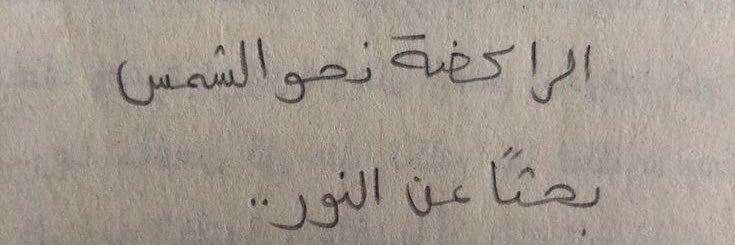 الراكضة نحو الشمس
بحثًا عن النور ..